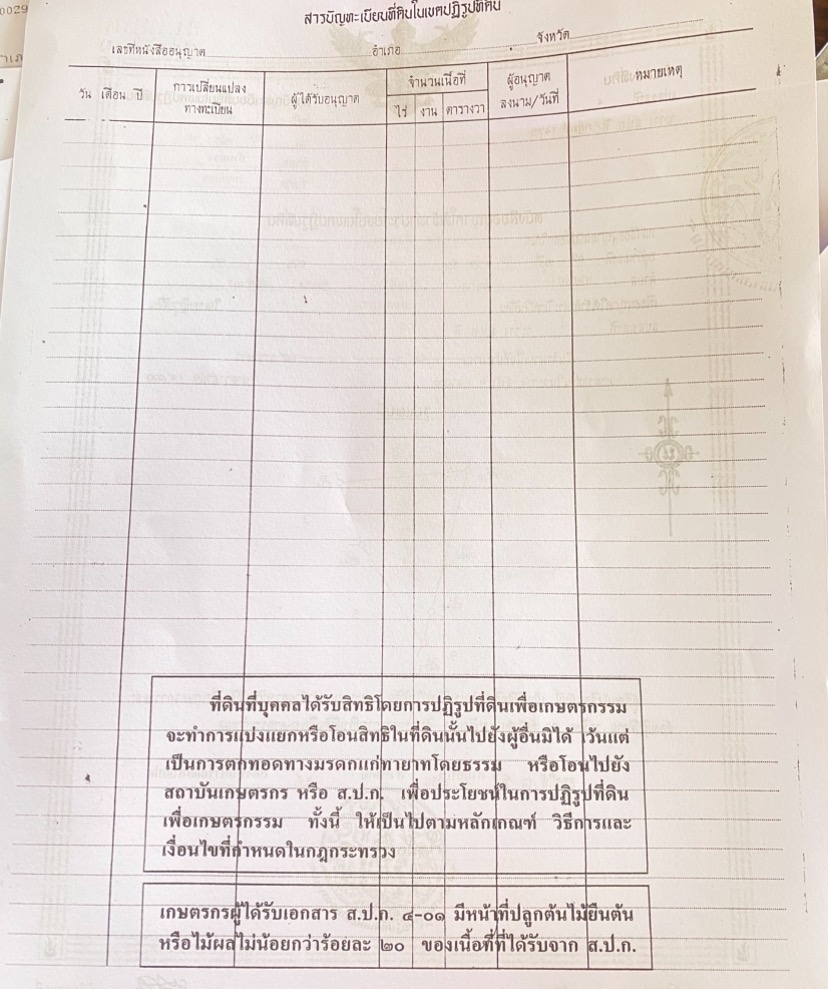 0029
สารบัญทะเบียนที่ดินในเขตปฏิรูปที่ดิน
เลขที่หนังสืออนุญาต อำเภอ จังหวัด
วัน เดือน ปี
การเปลี่ยนแปลง
ทางทะเบียน
ผู้ได้รับอนุญาต
จำนวนเนื้อที่
ไร่ งาน ตารางวา
ผู้อนุญาต
ลงนาม/วันที่
หมายเหตุ
ที่ดินที่บุคคลได้รับสิทธิโดยการปฏิรูปที่ดินเพื่อเกษตรกรรม
จะทำการแบ่งแยกหรือโอนสิทธิในที่ดินนั้นไปยังผู้อื่นมิได้ เว้นแต่
เป็นการตกทอดทางมรดกแก่ทายาทโดยธรรม หรือโอนไปยัง
สถาบันเกษตรกร หรือ ส.ป.ก. เพื่อประโยชน์ในการปฏิรูปที่ดิน
เพื่อเกษตรกรรม ทั้งนี้ ให้เป็นไปตามหลักเกณฑ์ วิธีการและ
เงื่อนไขที่กำหนดในกฎกระทรวง
เกษตรกรผู้ได้รับเอกสาร ส.ป.ก. ๔-๐๑ มีหน้าที่ปลูกต้นไม้ยืนต้น
หรือไม้ผลไม่น้อยกว่าร้อยละ ๒๐ ของเนื้อที่ที่ได้รับจาก ส.ป.ก.